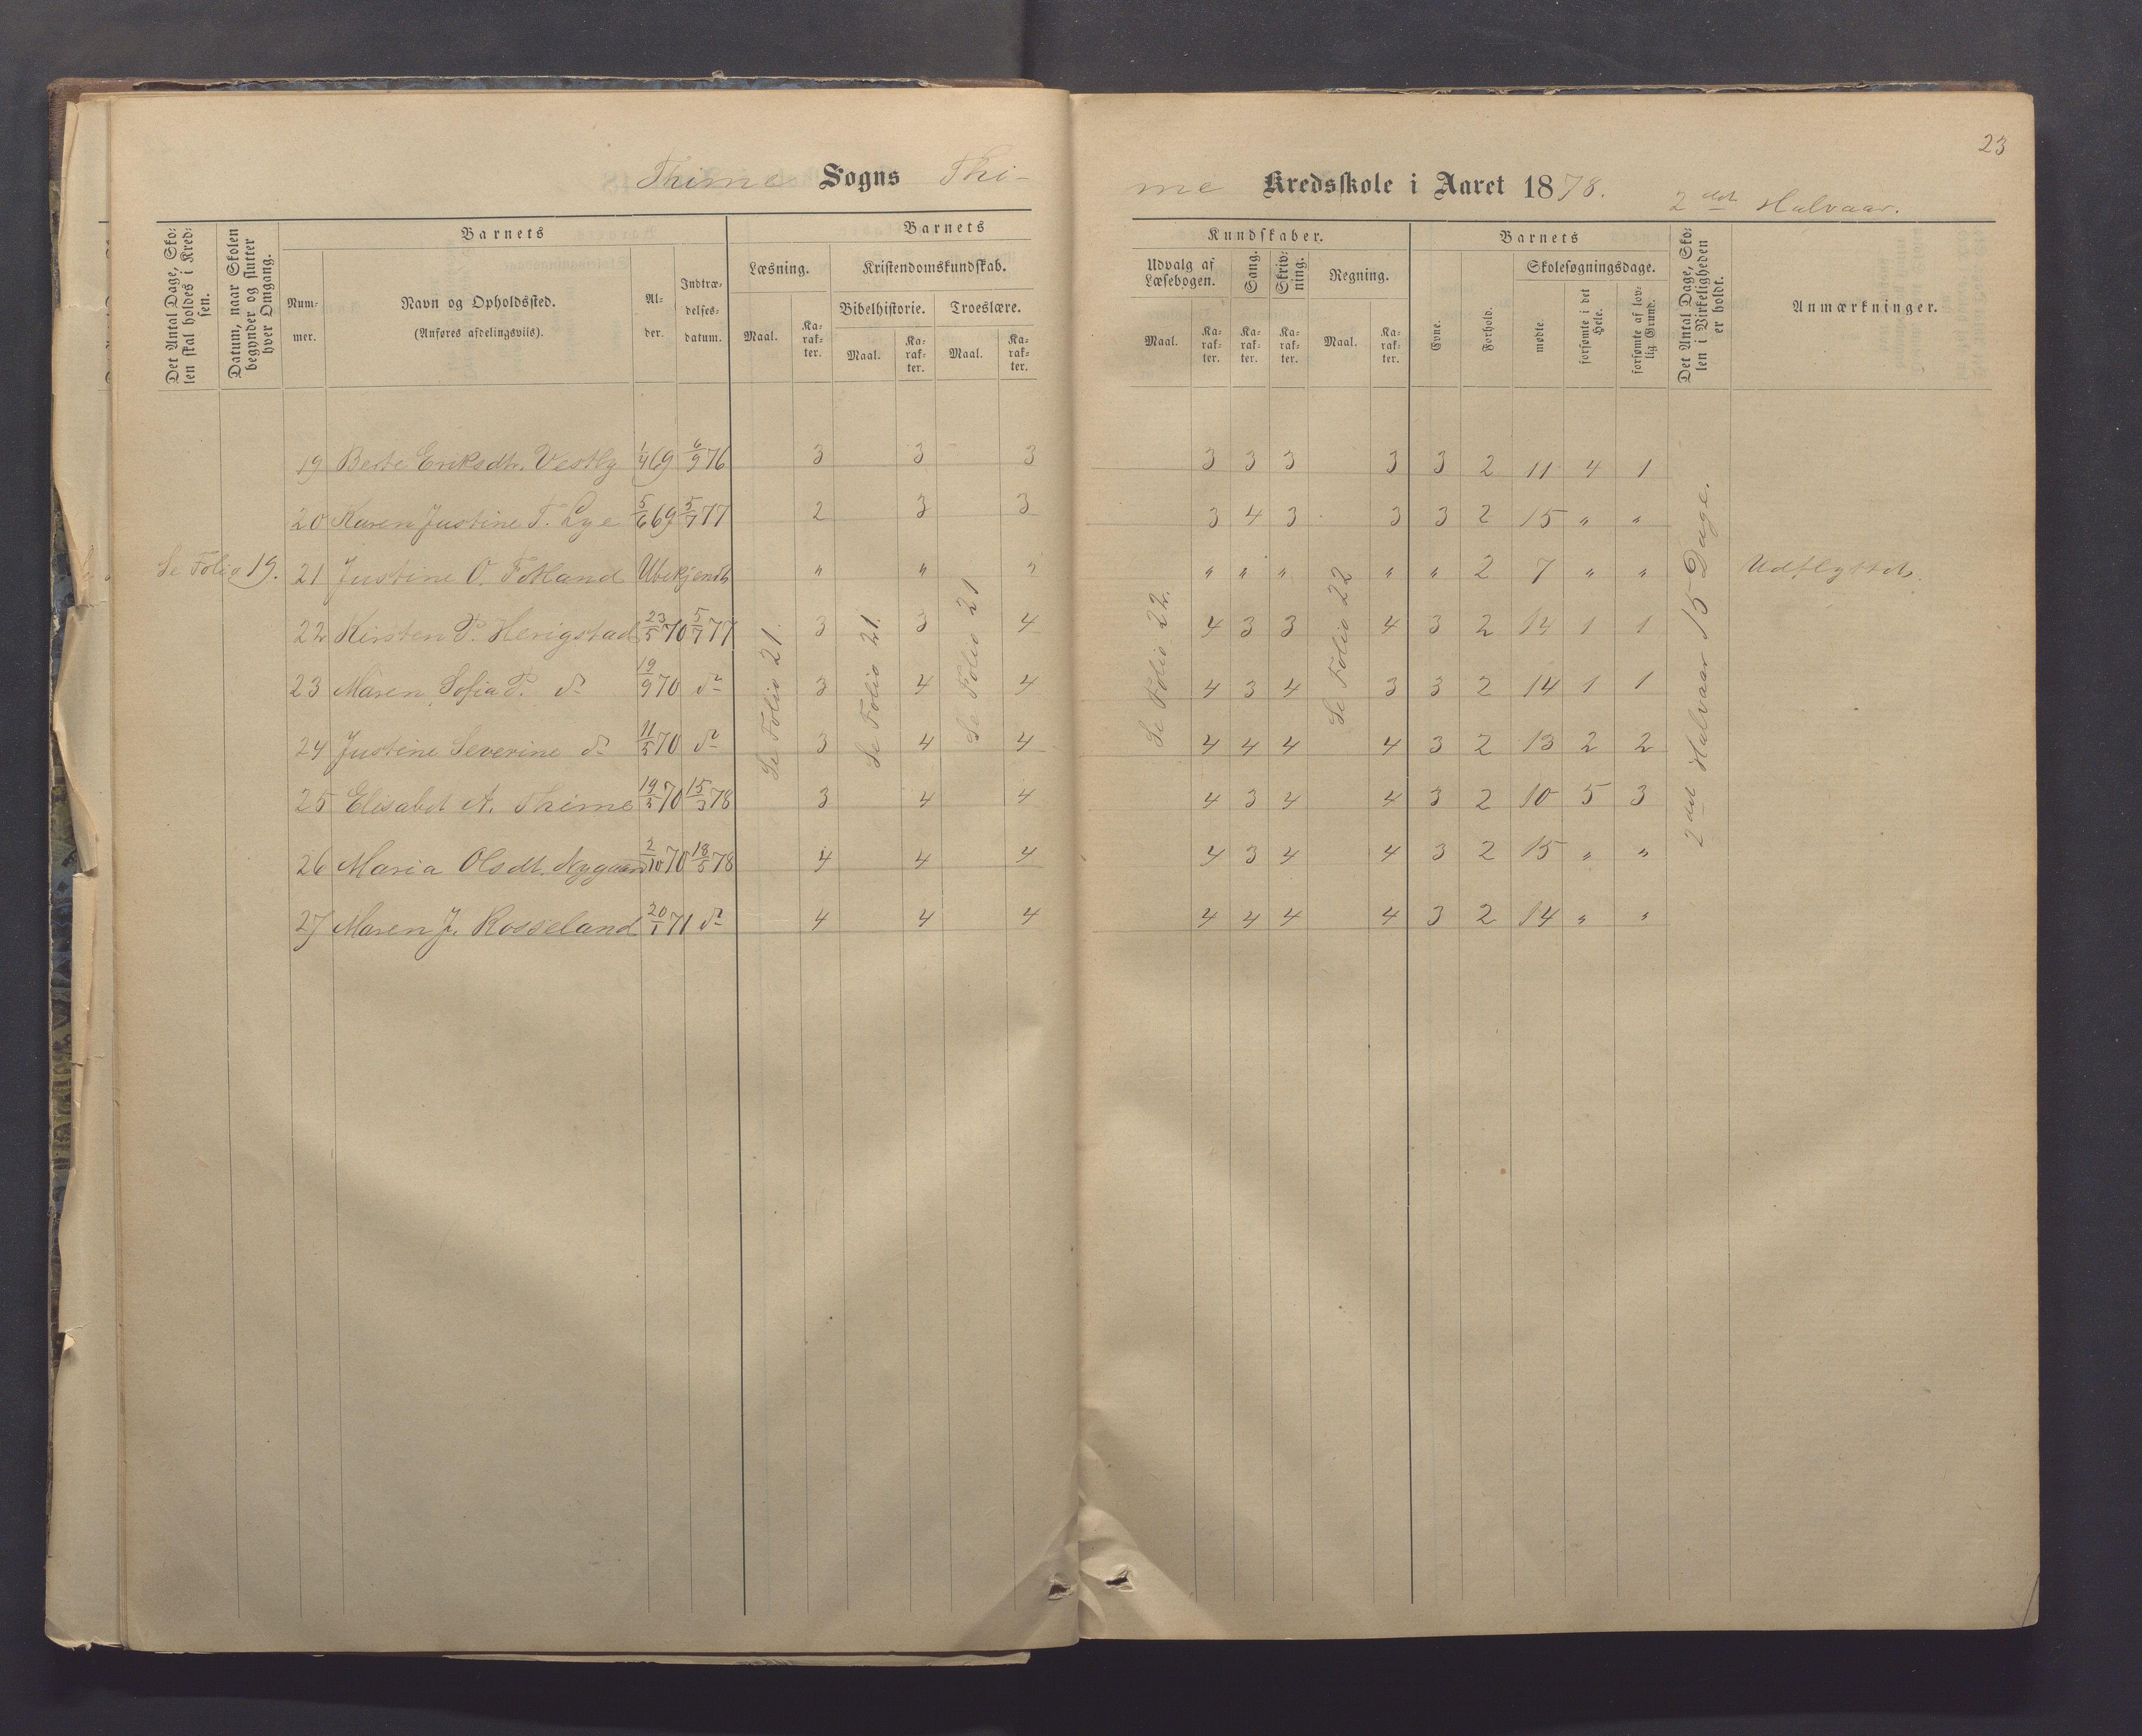 23
Thime Sogns Thime Kredsskole i Aaret 1878. 2det Halvaar.
Det Antal Dage, Skolen skal holdes i Kredsen.
Datum, naar Skolen begynder og slutter hver Omgang.
Barnets
Nummer.
Navn og Opholdssted.
(Anføres afdelingsviis).
Alder.
Indtrædelsesdatum.
Barnets Kundskaber.
Læsning.
Maal. Karakter.
Kristendomskundskab.
Bibelhistorie. Troeslære.
Maal. Karakter. Maal. Karakter.
Udvalg af Læsebogen.
Maal. Karakter.
Sang. Karakter.
Skrivning. Karakter.
Regning.
Maal. Karakter.
Barnets
Evne. Forhold.
Skolesøgningsdage.
mødte. forsømte i det Hele. forsømte af lovlig Grund.
Det Antal Dage, Skolen i Virkeligheden er holdt.
Anmærkninger.
19 Berte Eriksdtr. Vestly 1/4 69 6/9 76 3 3 3 3 3 3 3 3 2 11 4 1
20 Karen Justine T. Lye 5/6 69 5/7 77 2 3 3 3 4 3 3 3 2 15 " "
Se Folio 19. 21 Justine O. Fotland Ubekjendt " " " " " " " " 2 7 " " Udflyttet.
22 Kirsten P. Herigstad 23/5 70 5/7 77 3 3 4 4 3 3 4 3 2 14 1 1
23 Maren Sofia P. do 19/9 70 do 3 4 4 4 3 4 3 3 2 14 1 1
24 Justine Severine do 11/5 70 do 3 4 4 4 4 4 4 3 2 13 2 2
25 Elisabet A. Thime 19/5 70 15/3 78 3 4 4 4 3 4 4 3 2 10 5 3
26 Maria Olsdt. Nygaard 2/10 70 18/5 78 4 4 4 4 3 4 4 3 2 15 " "
27 Maren J. Rosseland 20/1 71 do 4 4 4 4 4 4 4 3 2 14 " "
Se Folio 21.
Se Folio 21.
Se Folio 21
Se Folio 22.
Se Folio 22
2det Halvaar 15 Dage.